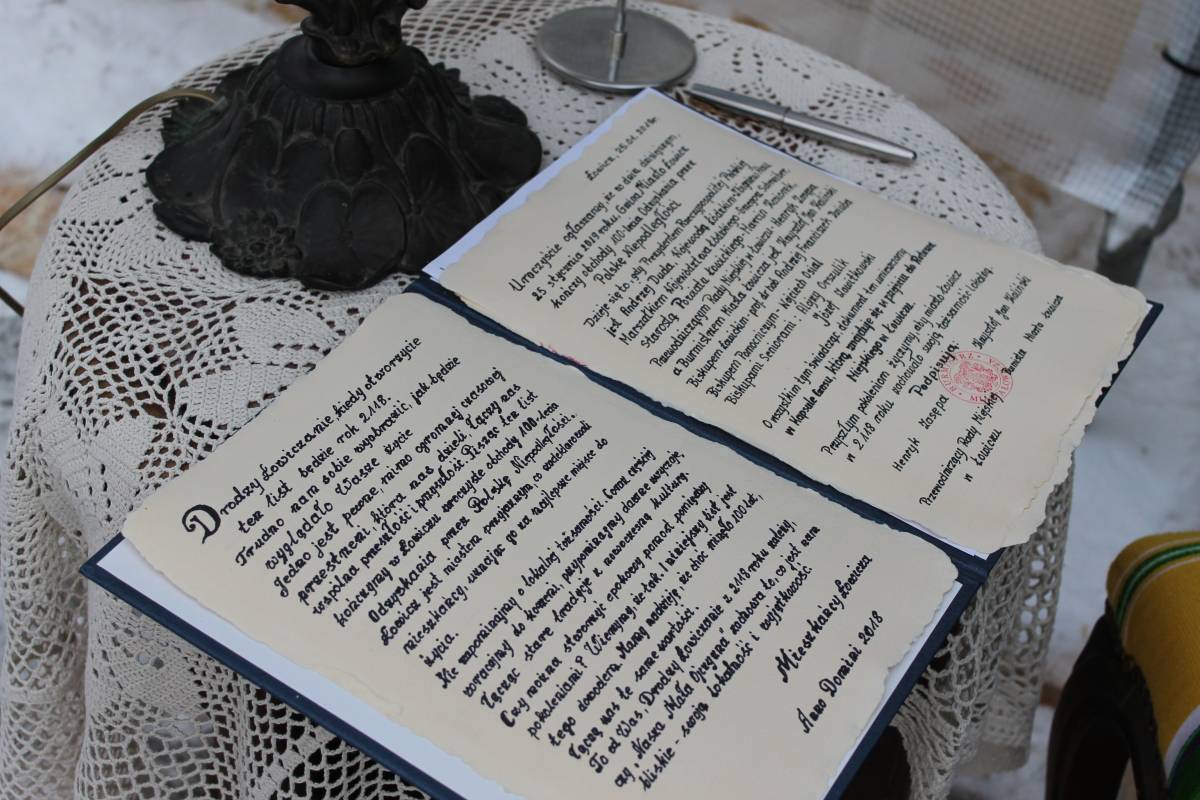 Drodzy Łowiczanie kiedy otworzycie
ten list będzie rok 2118.
Trudno nam sobie wyobrazić, jak będzie
wyglądało Wasze życie
Jedno jest pewne, mimo ogromnej czasowej
przestrzeni, która nas dzieli, łączy nas
wspólna przeszłość i przyszłość. Pisząc ten list
kończymy w Łowiczu uroczyste obchody 100-lecia
Odzyskania przez Polskę Niepodległości.
Łowicz jest miastem przyjaznym, co
mieszkańcy uznając go za najlepsze miejsce do
życia.
Nie zapominajmy o lokalnej tożsamości. Coraz częściej
wracajmy do korzeni, przypominajmy dawne zwyczaje,
łącząc stare tradycje z nowoczesną kulturą.
Czy można stworzyć epokowy pomost pomiędzy
pokoleniami? Wierzymy, iż tak. I niniejszy list jest
tego dowodem. Mamy nadzieję, że choć minęło 100 lat,
łączą nas te same wartości.
To od Was, Drodzy Łowiczanie z 2118 roku zależy,
czy „Nasza Mała Ojczyzna" zachowa to, co jest nam
bliskie - swoją lokalność i wyjątkowość
Mieszkańcy Łowicza
Anno Domini 2018
Łowicz, 25.01.2019r.
Uroczyście ogłaszamy, że w dniu dzisiejszym,
25 stycznia 2019 roku, Gmina Miasto Łowicz
kończy obchody 100-lecia Odzyskania przez
Polskę Niepodległości.
Dzieje się to, gdy Prezydentem Rzeczypospolitej Polskiej
jest Andrzej Duda, Wojewodą Łódzkim
Marszałkiem Województwa Łódzkiego Grzegorz Schreiber
Starostą Powiatu Łowickiego Marcin Kosiorek,
Przewodniczącym Rady Miejskiej w Łowiczu Henryk Zasępa
a Burmistrzem Miasta Łowicza jest Krzysztof Jan Kaliński
Biskupem Łowickim - prof. dr hab. Andrzej Franciszek Dziuba
Biskupem Pomocniczym - Wojciech Osial
Biskupami Seniorami: Alojzy Orszulik
Józef Zawitkowski
O wszystkim tym świadczy dokument ten umieszczony
w Kapsule Czasu, którą znajduje się w
Miejskiego w Łowiczu.
Przyszłym pokoleniom życzymy, aby miasto Łowicz
w 2118 roku zachowało swoją tożsamość i
Podpisują:
Henryk Zasępa Krzysztof Jan Kaliński
Przewodniczący Rady Miejskiej Burmistrz Miasta Łowicza
w
Łowiczu